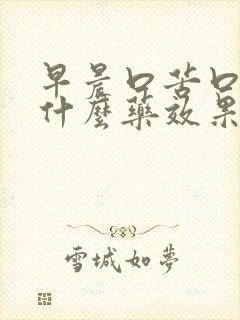 早晨口苦口
什麼藥效果
雪城如夢